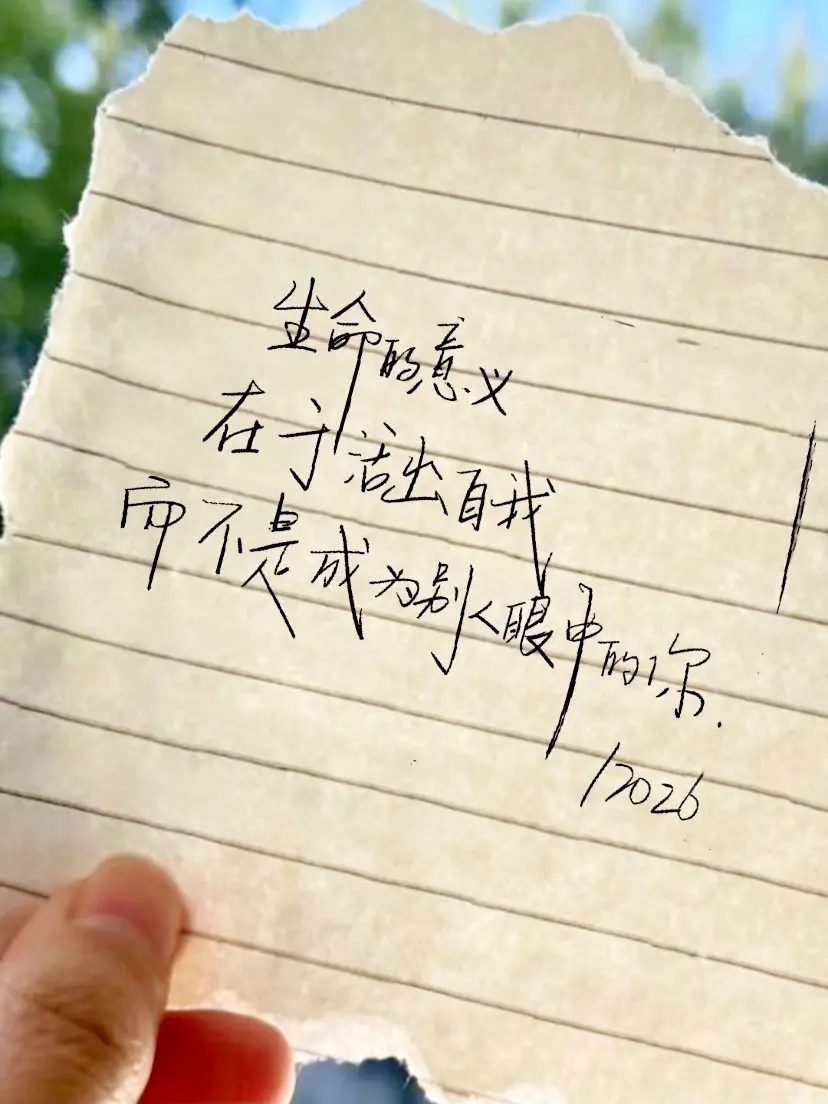 生命的意义
在于活出自我
而不是成为别人眼中的你.
/2026